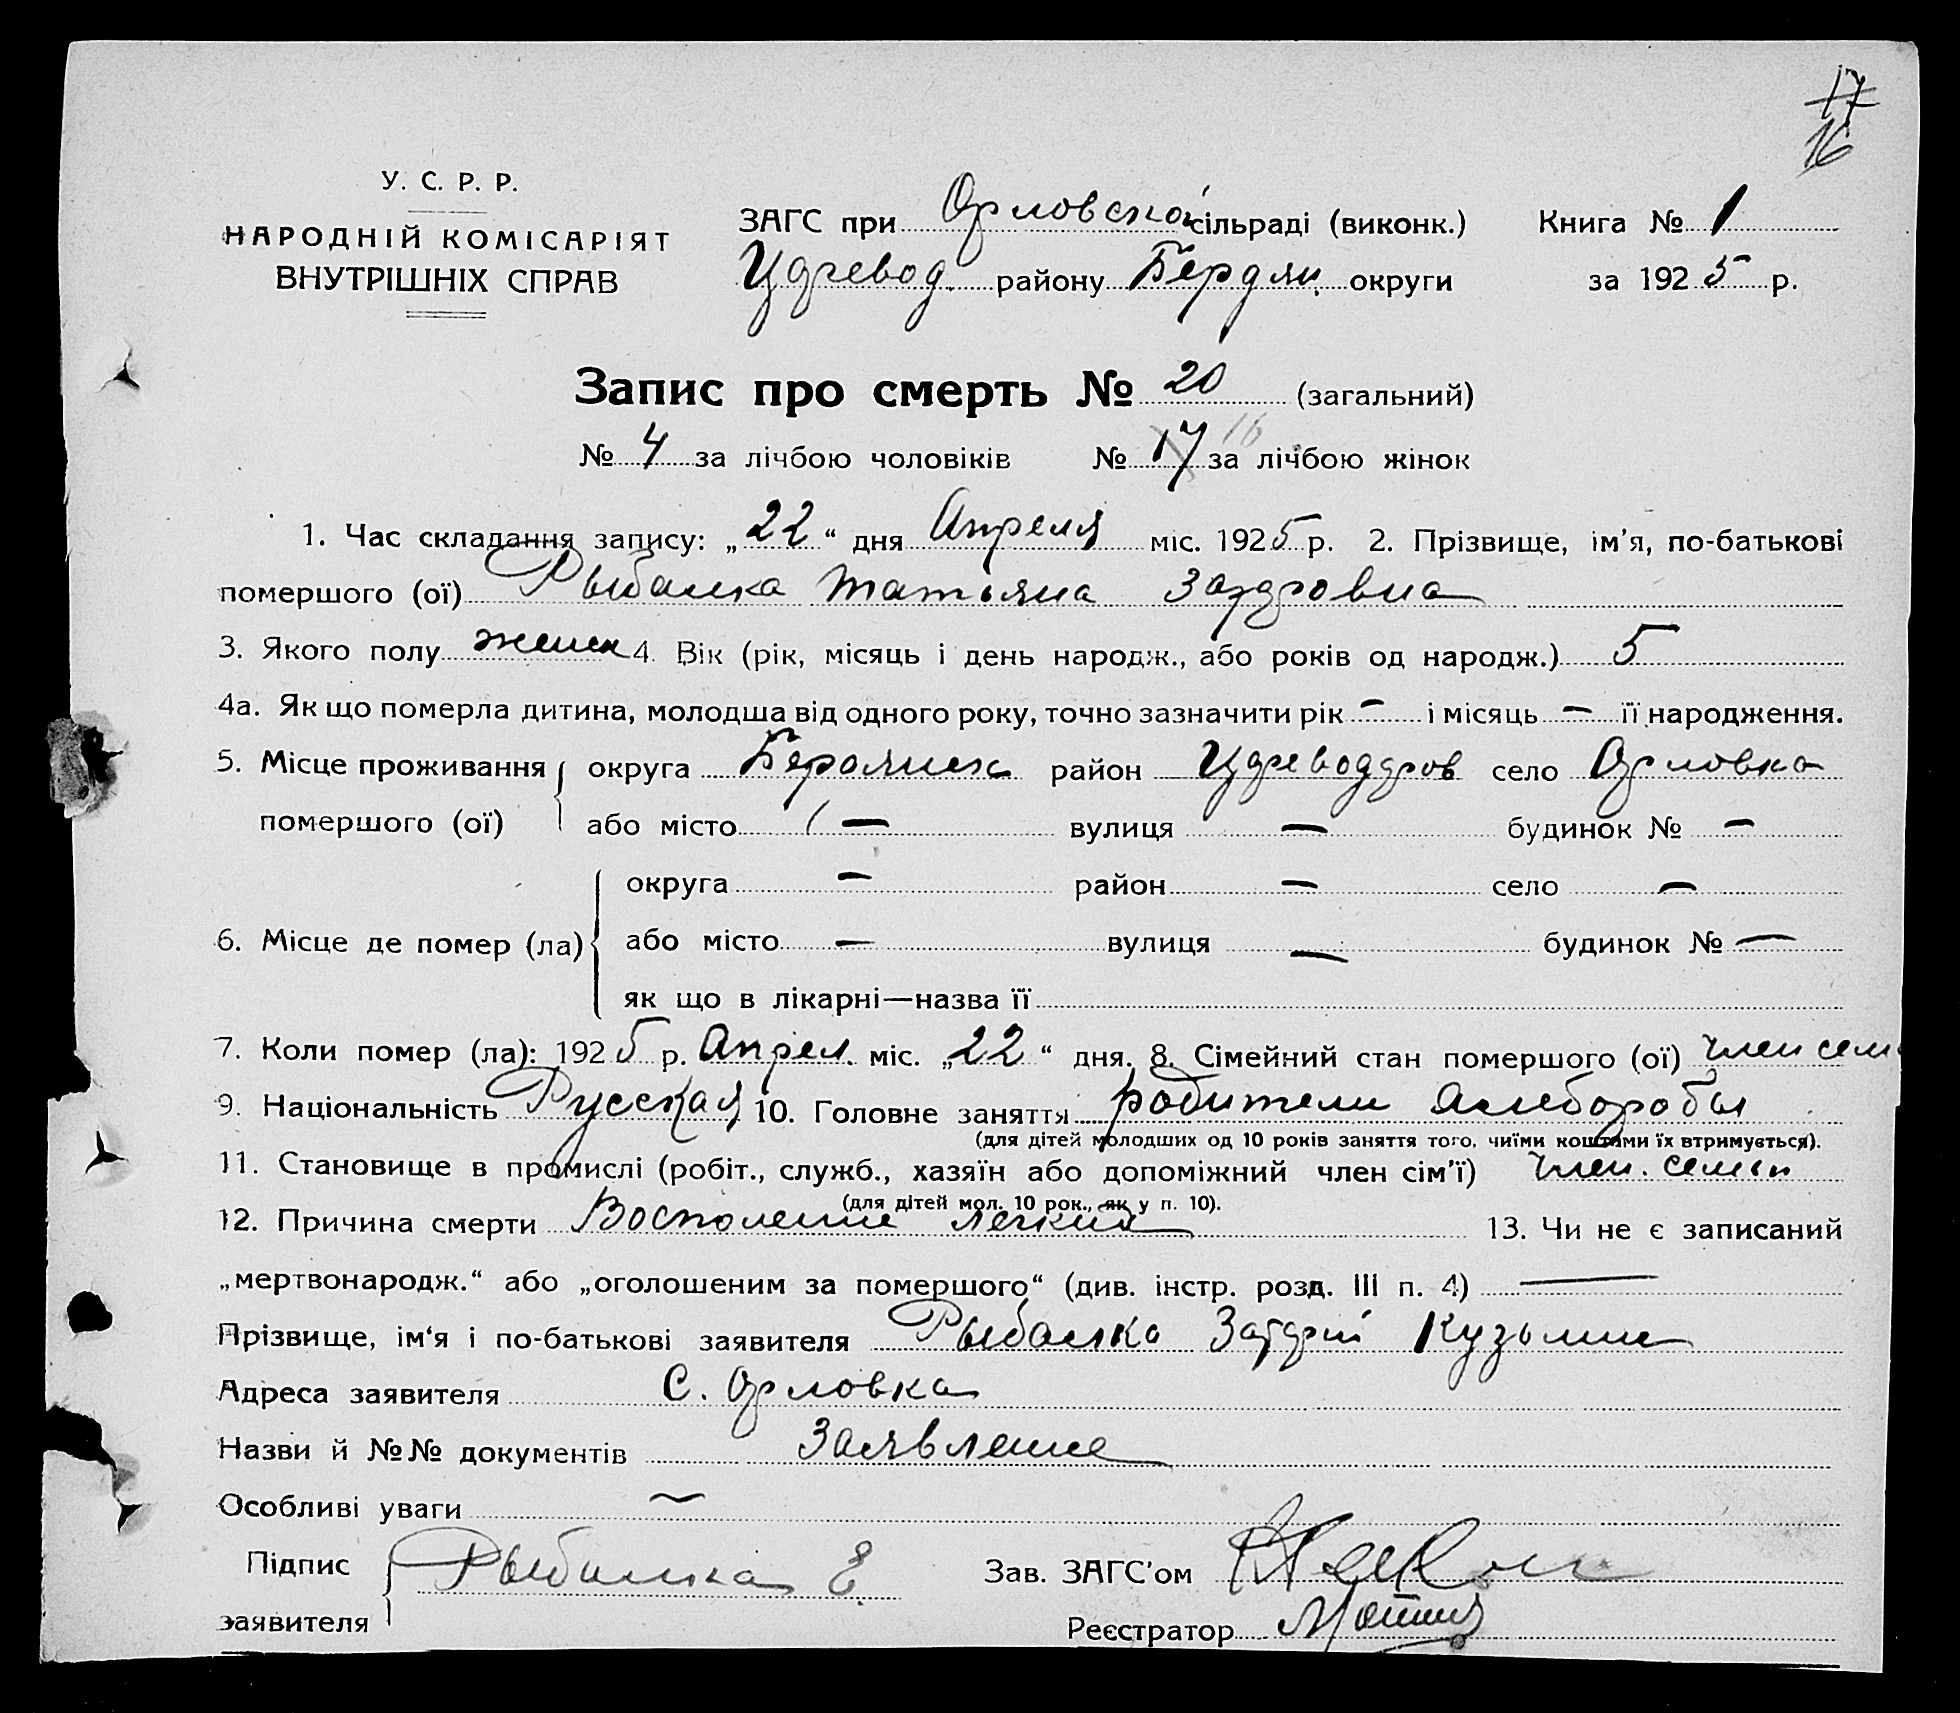 17
16
У. С. Р. Р.
НАРОДНІЙ КОМІСАРІЯТ
ВНУТРІШНІХ СПРАВ
ЗАГС при Орловской сільраді (виконк.) Книга № 1
району Бердян. округи за 1925 р.
Запис про смерть № 20 (загальний)
№ 4 за лічбою чоловіків № 17 16 за лічбою жінок
1. Час складання запису: „22“ дня Апреля міс. 1925 р. 2. Прізвище, ім’я, по-батькові
помершого (ої) Рыбалка Татьяна
3. Якого полу женск 4. Вік (рік, місяць і день народж., або років од народж.) 5
4а. Як що померла дитина, молодша від одного року, точно зазначити рік — і місяць — її народження.
5. Місце проживання округа Бердянск район село Орловка
помершого (ої) або місто — вулиця — будинок № —
округа — район — село —
6. Місце де помер (ла) або місто — вулиця — будинок № —
як що в лікарні—назва її
7. Коли помер (ла): 1925 р. Апрел. міс. „22“ дня. 8. Сімейний стан помершого (ої) член сем
9. Національність Русская 10. Головне заняття родители хлеборобы
(для дітей молодших од 10 років заняття того, чиїми коштами їх втримується).
11. Становище в промислі (робіт., служб., хазяїн або допоміжний член сім’ї) член. семьи
(для дітей мол. 10 рок., як у п. 10).
12. Причина смерти Восполение легких 13. Чи не є записаний
„мертвонародж.“ або „оголошеним за помершого“ (див. інстр. розд. III п. 4) —
Прізвище, ім‘я і по-батькові заявителя Рыбалка Кузьмич
Адреса заявителя С. Орловка
Назви й №№ документів Заявление
Особливі уваги —
Підпис Рыбалка Е Зав. ЗАГС’ом
заявителя Реєстратор